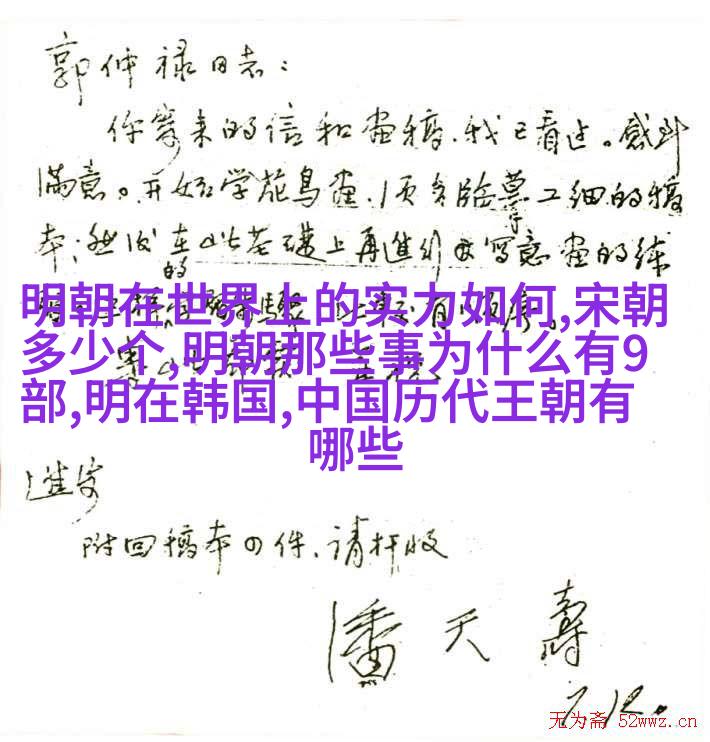 郭仲禄同志：
你寄来的信和画稿，我已看过。感到
满意。开始学花鸟画，须多临摹工细的稿
本；然后在此基础上再进行写意画的练
的
明朝在世界上的实力如何,宋朝
多少个,明朝那些事为什么有9
部,明在韩国,中国历代王朝有
哪些
进安
附回稿本四件、请检收
潘天寿
7.12.
无为斋 52wwz.cn